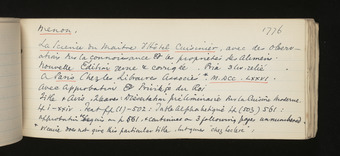 Menon. 1776
La Science du Maitre d'Hôtel Cuisinier, avec des Observ-
ations sur la connoissance et les proprietés des Alimens.
Nouvelle Edition revue & corrigée. Prix
A Paris Chez les Libraires Associés M.DCC.LXXVI.
Avec Approbation & Privilège du Roi
Title & Avis, 2 leaves: Dissertation préliminaire sur la Cuisine moderne
i-xxiv. Text pp (1)-502: Table Alphabetique (503) 561:
Approbation begins on p 561 & continues on 3 following pages unnumbered.
Vicaire does not give this particular title.